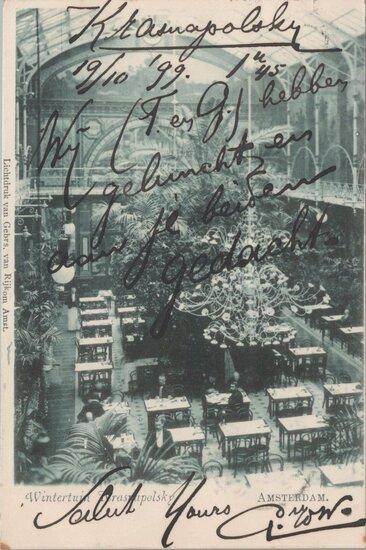 Krasnapolsky
19/10 '99. 1 u 45
Wij (T. en G.) hebben
geluncht en
aan je beiden
gedacht.
Lichtdruk van Gebrs. van Rijkom Amst.
Wintertuin Krasnapolsky
AMSTERDAM.
Salut Yours